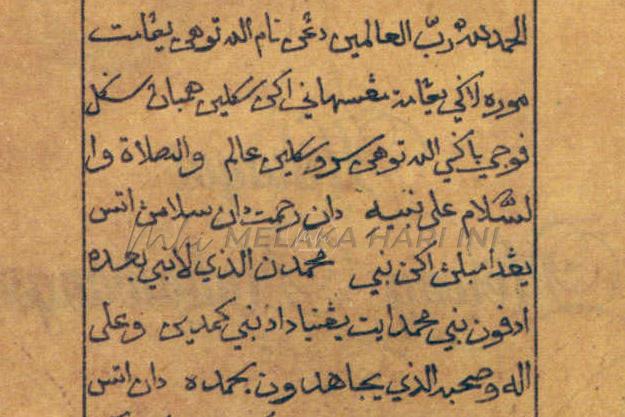 الحمد لله ربّ العالمين دڠن نام الله توهن يڠامت
موره لاڬي يڠامت مڠسهاني اكن سكلين همبان سڬل
فوجي باڬي الله توهن سرو سكلين عالم والصلاة وا
لسّلام على نبيه دان رحمت دان سلامن اتس
يڠد امبلن اكن نبي محمدن الذي لا نبي بعده
ادفون نبي محمد ايت يڠتياد اد نبي كمدين وعلى
اله وصحبه الذي يجاهدون بحمده دان اتس
MELAKA HARI INI